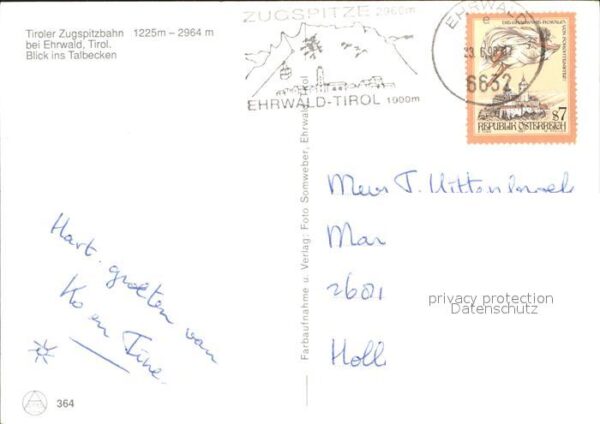 Tiroler Zugspitzbahn 1225m – 2964 m
bei Ehrwald, Tirol.
Blick ins Talbecken
ZUGSPITZE 2960m
EHRWALD-TIROL 1900m
EHRWALD
e
6632
S7
REPUBLIK ÖSTERREICH
Farbaufnahme u. Verlag: Foto Somweber, Ehrwald, Tirol
Hart. groeten van
Ko en Tine.
364
Mevr T.
2601
Holl
privacy protection
Datenschutz